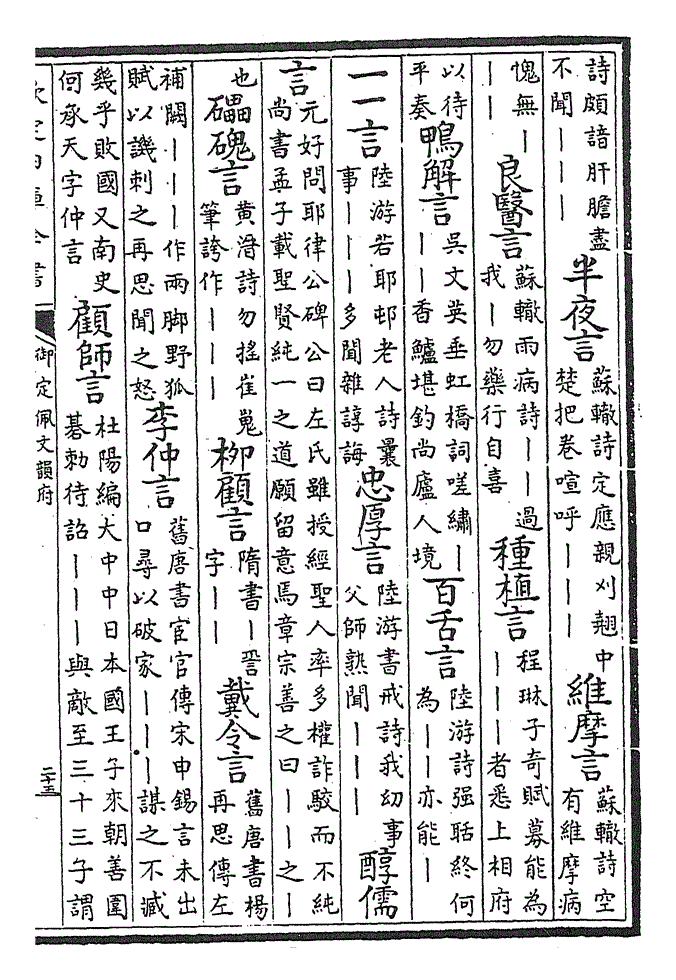 詩頗諳肝膽盡
不聞丨丨丨
半夜言
蘇轍詩定應親刈翹中
楚把卷喧呼丨丨丨
維摩言
蘇轍詩空
有維摩病
愧無丨
丨丨
良醫言
蘇轍雨病詩丨丨過
我丨勿藥行自喜
種植言
程琳子奇賦募能為
丨丨丨者悉上相府
以待
平奏
鴨解言
吳文英垂虹橋詞嗟繡丨
丨丨香鱸堪釣尚廬人境
百舌言
陸游詩强聒終何
為丨丨亦能丨
一一言
陸游若耶邨老人詩曩
事丨丨丨多聞雜諄誨
忠厚言
陸游書戒詩我幼事
父師熟聞丨丨丨
醇儒
言
元好問耶律公碑公曰左氏雖授經聖人率多權詐駮而不純
尚書孟子載聖賢純一之道願留意焉章宗善之曰丨丨之丨
也
礧磈言
黄溍詩勿搖崔嵬
筆誇作丨丨丨
柳顧言
隋書丨䛒
字丨丨
戴令言
舊唐書楊
再思傳左
補闕丨丨丨作兩脚野狐
賦以譏刺之再思聞之怒
李仲言
舊唐書宦官傳宋申錫言未出
口尋以破家丨丨丨謀之不臧
幾乎敗國又南史
何承天字仲言
顧師言
杜陽編大中中日本國王子來朝善圍
碁勅待詔丨丨丨與敵至三十三子謂
欽定四庫全書
御定佩文韻府
二十五